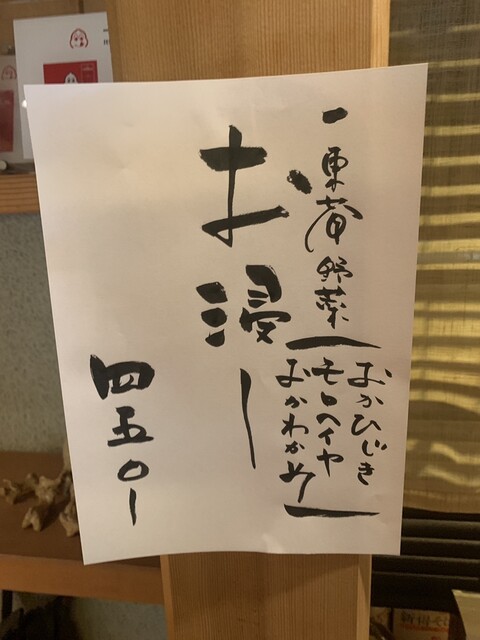 一 東京野菜
おかひじき
モロヘイヤ
おかわかめ
お浸し
四五〇-